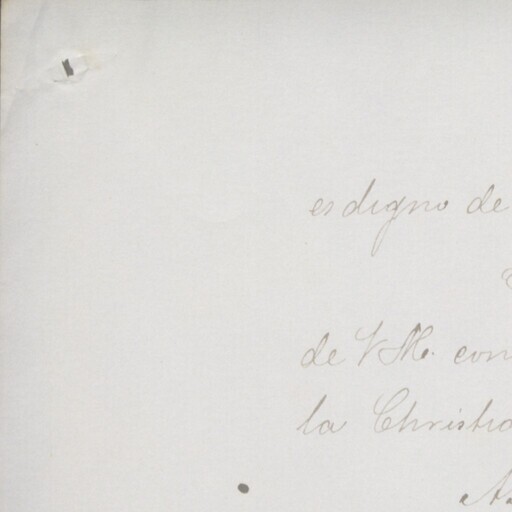 es digno de
de V. M. con
la Christia